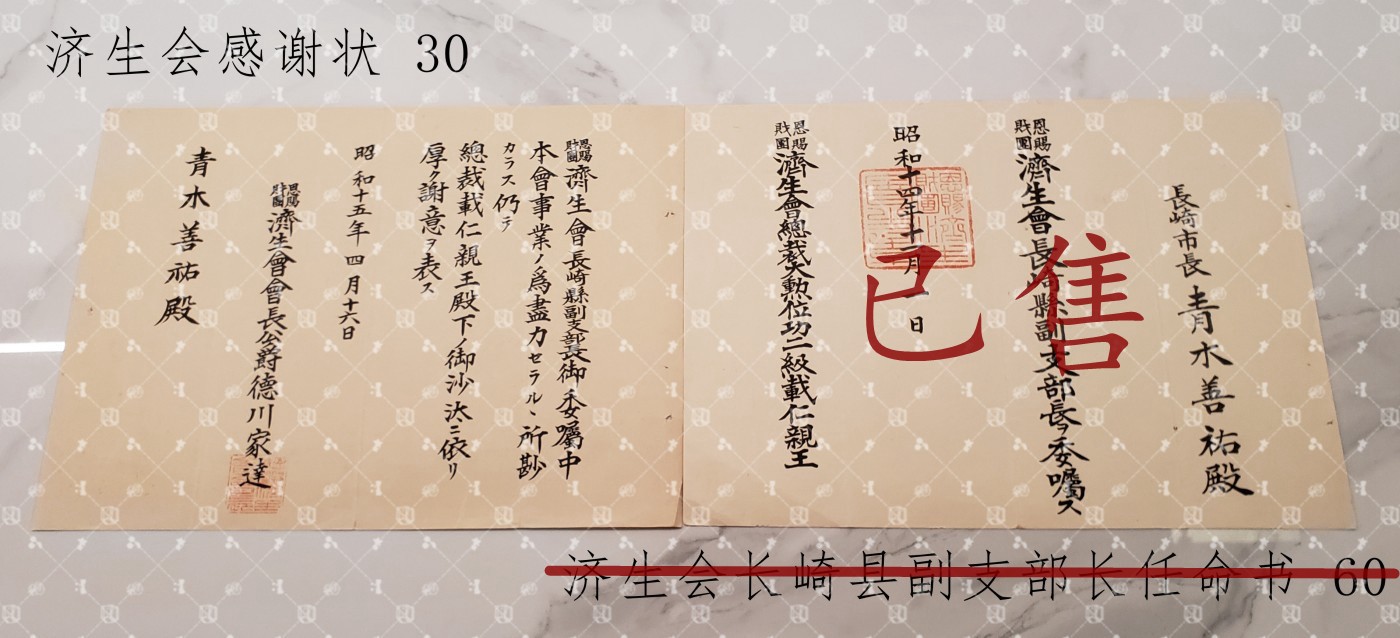 济生会感谢状 30
長崎市長 青木善祐殿
恩賜財團濟生會長崎縣副支部長ヲ委囑ス
昭和十四年十一月一日
恩賜財團濟生會總裁大勲位功二級載仁親王
恩賜財團濟生會長崎縣副支部長御委囑中
本會事業ノ爲盡力セラルヽ所尠
カラス仍テ
總裁載仁親王殿下ノ御沙汰ニ依リ
厚ク謝意ヲ表ス
昭和十五年四月十六日
恩賜財團濟生會會長公爵德川家達
青木善祐殿
已售
济生会长崎县副支部长任命书 60